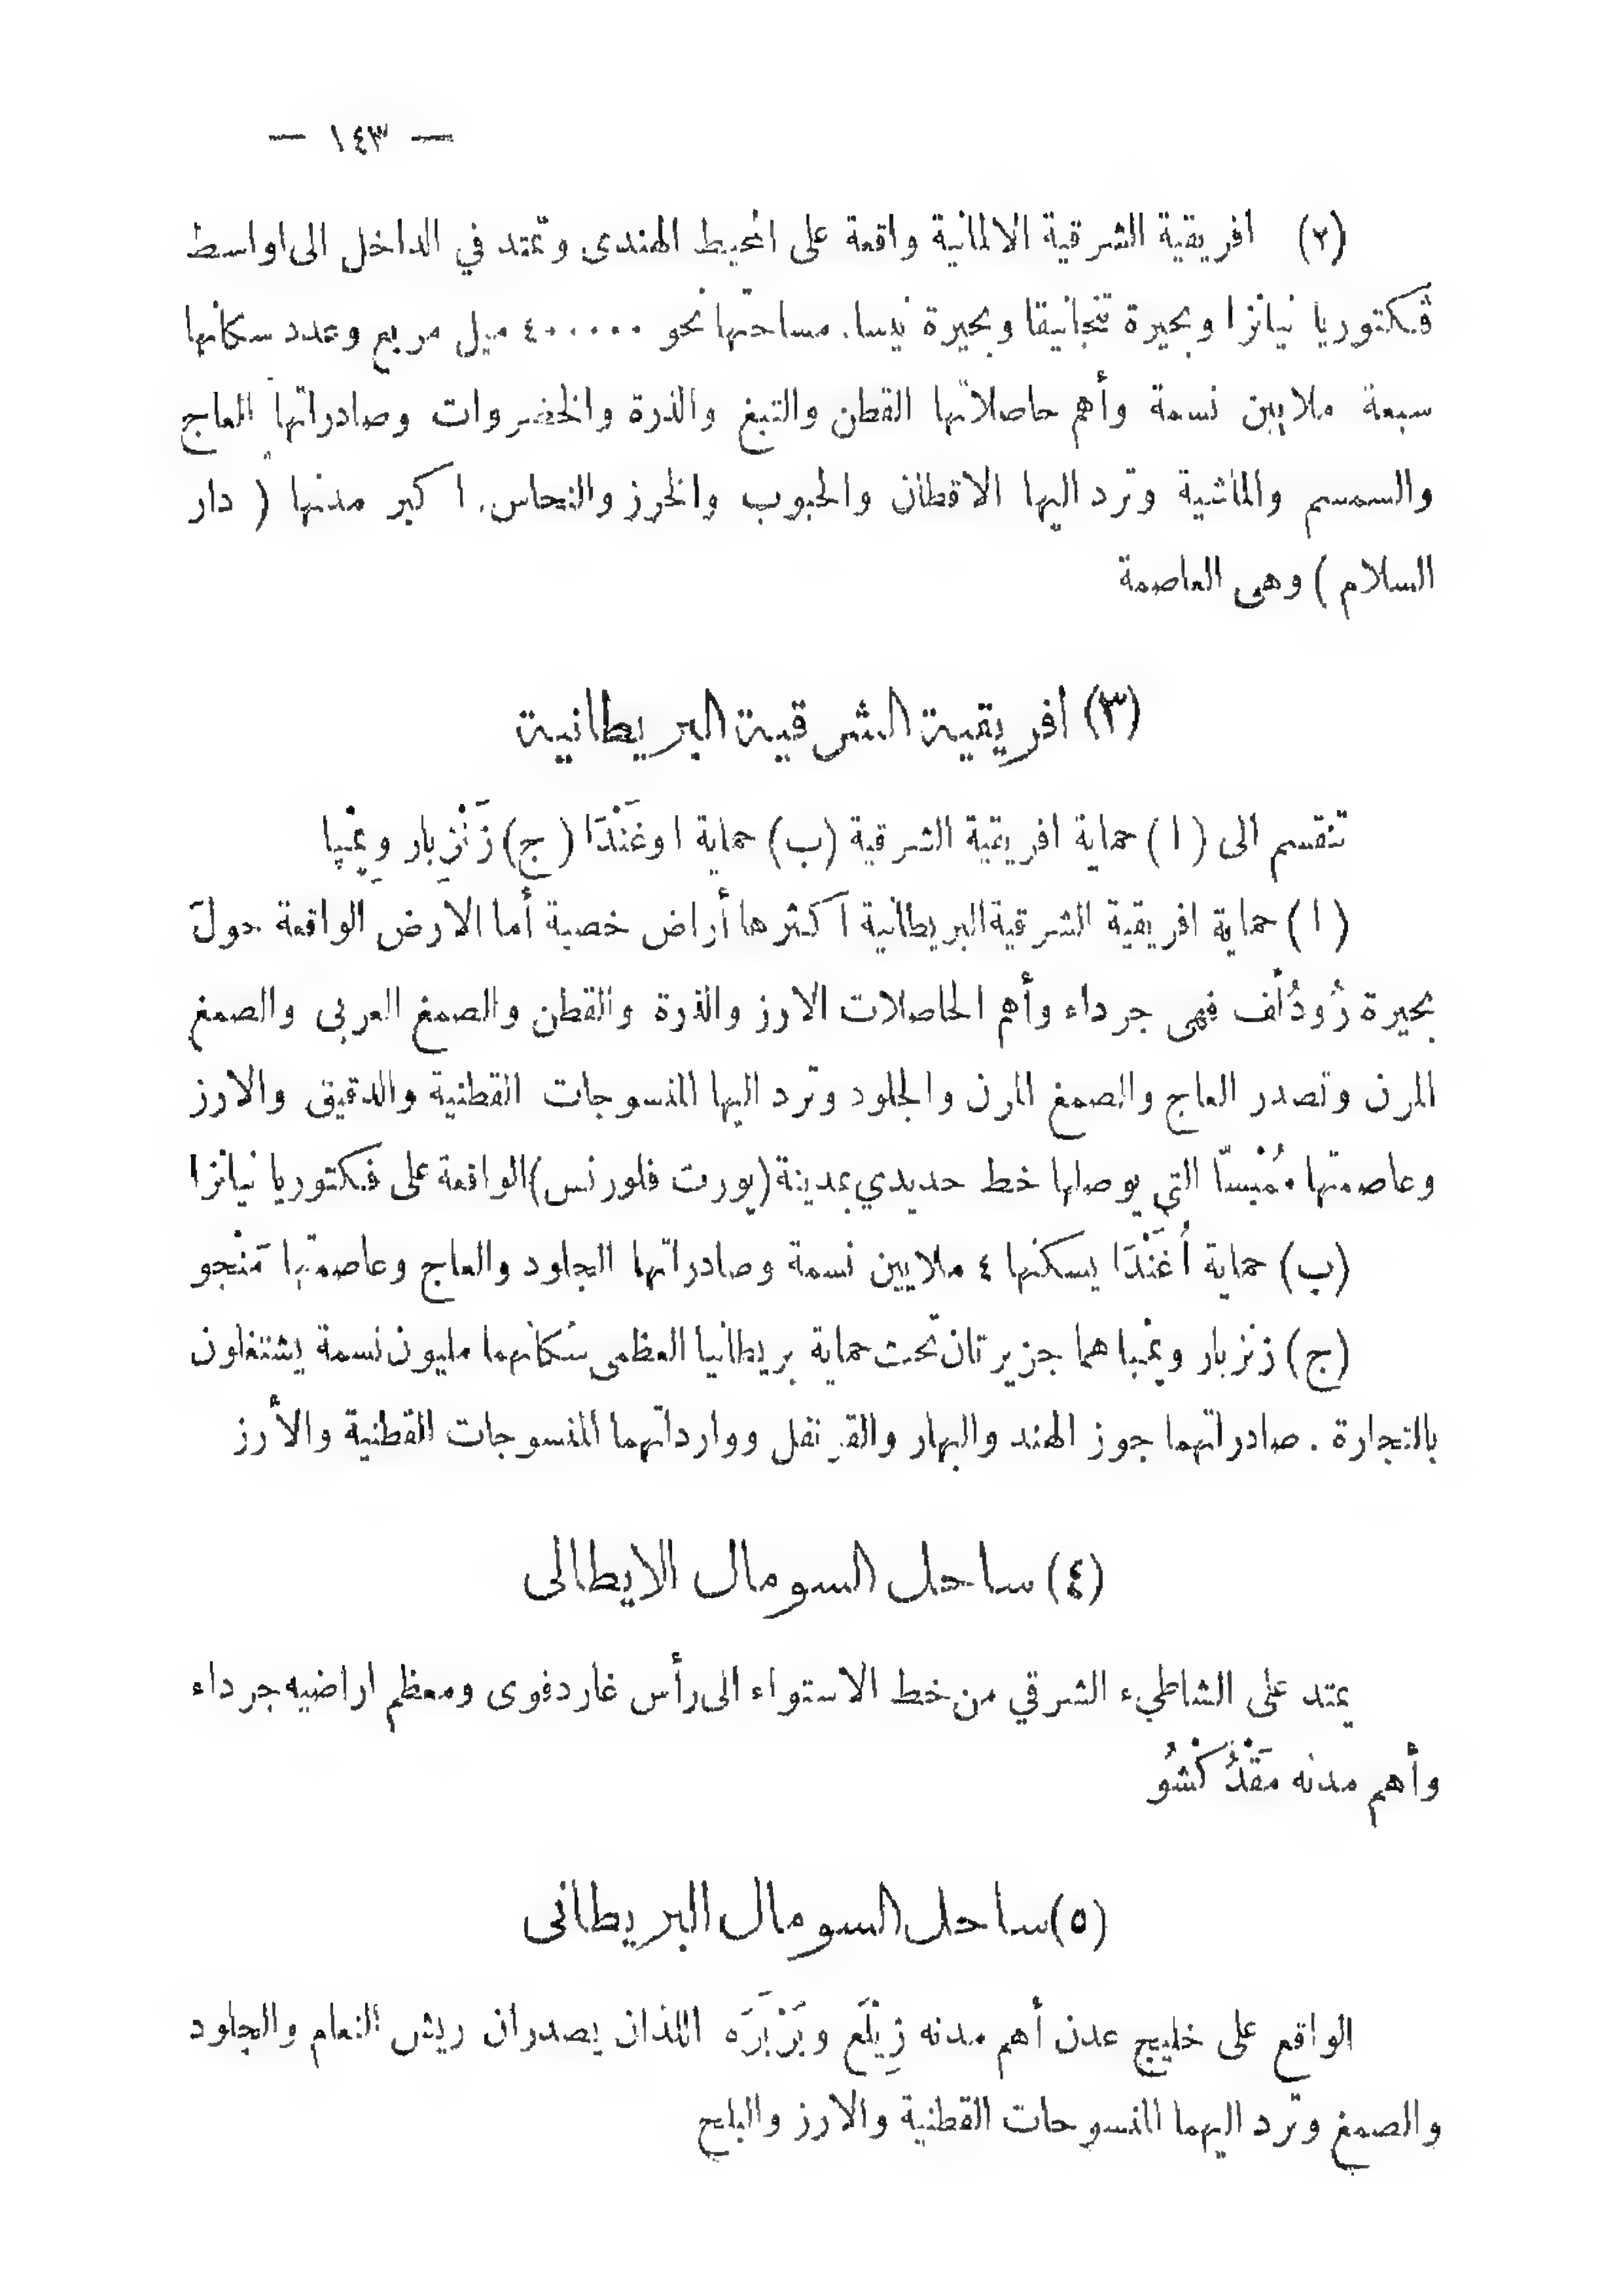 — ١٤٣ —
(٢) افريقية الشرقية الالمانية واقعة على المحيط الهندى وتمتد في الداخل الى اواسط
ڤكتوريا نيانزا وبحيرة تنجانيقا وبحيرة نيسا. مساحتها نحو ٤٠٠٠٠٠ ميل مربع وعدد سكانها
سبعة ملايين نسمة وأهم حاصلاتها القطن والتبغ والذرة والخضروات وصادراتها العاج
والسمسم والماشية وترد اليها الاقطان والحبوب والخرز والنحاس. اكبر مدنها ( دار
السلام ) وهى العاصمة
(٣) افريقية الشرقية البريطانية
تنقسم الى ( ا ) حماية افريقية الشرقية (ب) حماية اوغَنْدَا ( ج) زَنْزِبار وبِمْبِا
( ا ) حماية افريقية الشرقية البريطانية اكثرها أراض خصبة أما الارض الواقعة حول
بحيرة رُودُلف فهى جرداء وأهم الحاصلات الارز والذرة والقطن والصمغ العربى والصمغ
المرن وتصدر العاج والصمغ المرن والجلود وترد اليها المنسوجات القطنية والدقيق والارز
وعاصمتها مُمْبسّا التي يوصلها خط حديدي بمدينة (پورت فلورنس) الواقعة على ڤكتوريا نيانزا
(ب) حماية أُغَنْدَا يسكنها ٤ ملايين نسمة وصادراتها الجلود والعاج وعاصمتها مَنْجو
(ج) زنزبار وبمبا هما جزيرتان تحت حماية بريطانيا العظمى سكانهما مليون نسمة يشتغلون
بالتجارة . صادراتهما جوز الهند والبهار والقرنفل ووارداتهما المنسوجات القطنية والأرز
(٤) ساحل السومال الايطالى
يمتد على الشاطىء الشرقي من خط الاستواء الى رأس غاردفوى ومعظم اراضيه جرداء
وأهم مدنه مَقْدُكْشُو
(٥) ساحل السومال البريطانى
الواقع على خليج عدن أهم مدنه زِيْلَع وبَرْبَرَه اللذان يصدران ريش النعام والجلود
والصمغ وترد اليهما المنسوجات القطنية والارز والبلح